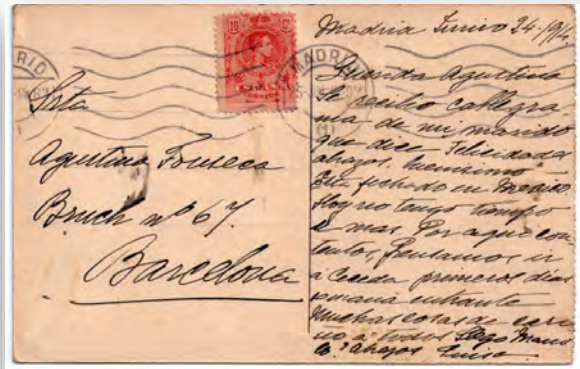 10 C
MADRID
Srta
Agustina Fonseca
Bruch nº 67.
Barcelona
Madrid Junio 24-
Querida Agustina
Se recibio cablegra
ma de mi marido
que dice Felicidades
abrazos.
Esta fechado en Mexico.
Hoy no tengo tiempo
a mas. Por aqui con
tentos, pensamos ir
a Cereda primeros dias
semana entrante
Muchas cosas de cari
no a todos Llego
abrazos Luisa